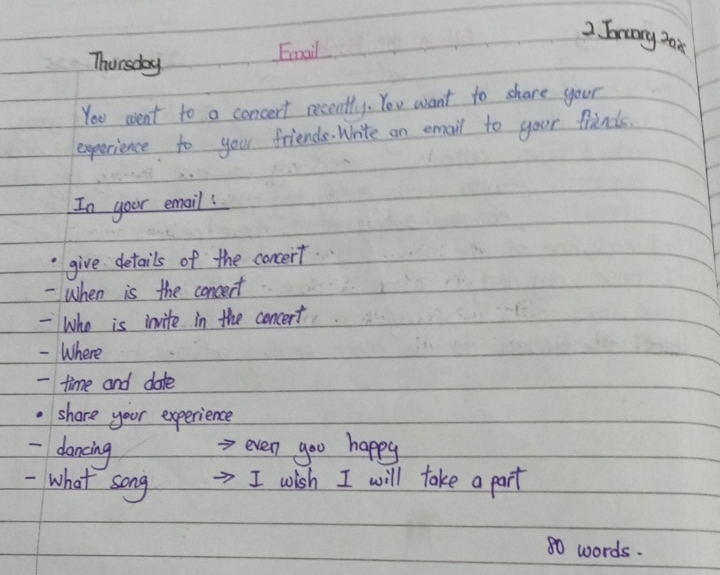 Thursday Email 2 January
You went to a concert recently. You want to share your
experience to your friends. Write an email to your friends.
In your email :
• give details of the concert
- When is the concert
- Who is invite in the concert
- Where
- time and date
• share your experience
- dancing → even you happy
- What song → I wish I will take a part
80 words.